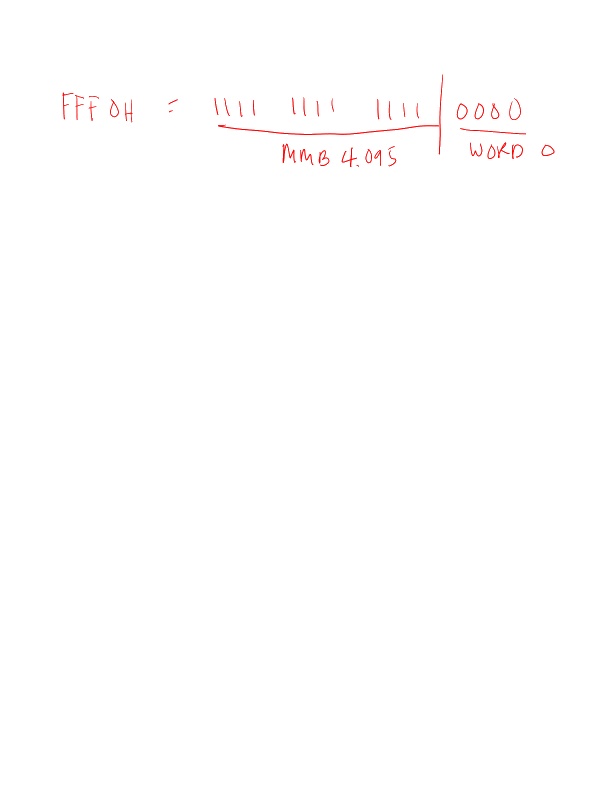 FFF0H = 1111 1111 1111 | 0000
MMB 4.095 WORD 0